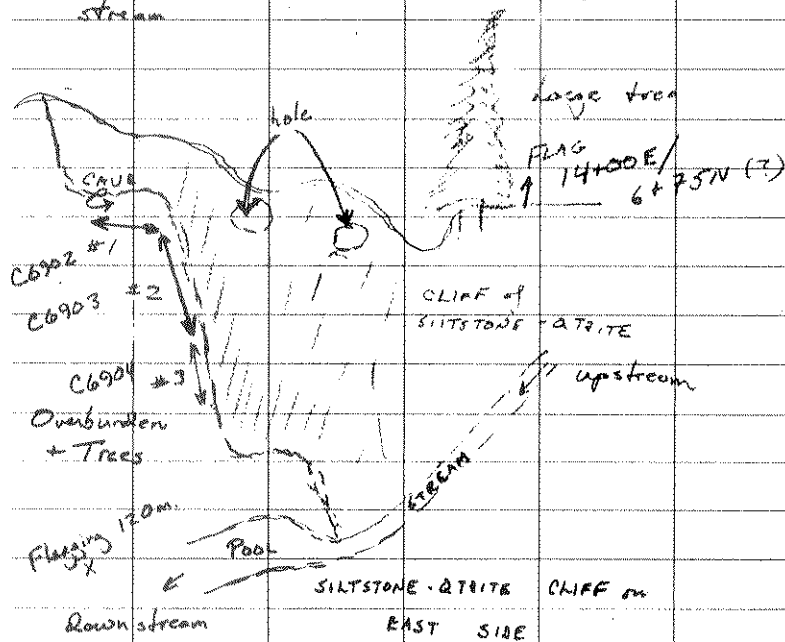 stream
hole
Large tree
FLAG
14+00E/
6+75N (?)
CAVE
C6902 #1
C6903 #2
CLIFF of
SILTSTONE - QTZITE
C6904 #3
upstream
Overburden
+ Trees
STREAM
120m.
Flagging
x
POOL
SILTSTONE - QTZITE CLIFF on
EAST SIDE
Downstream